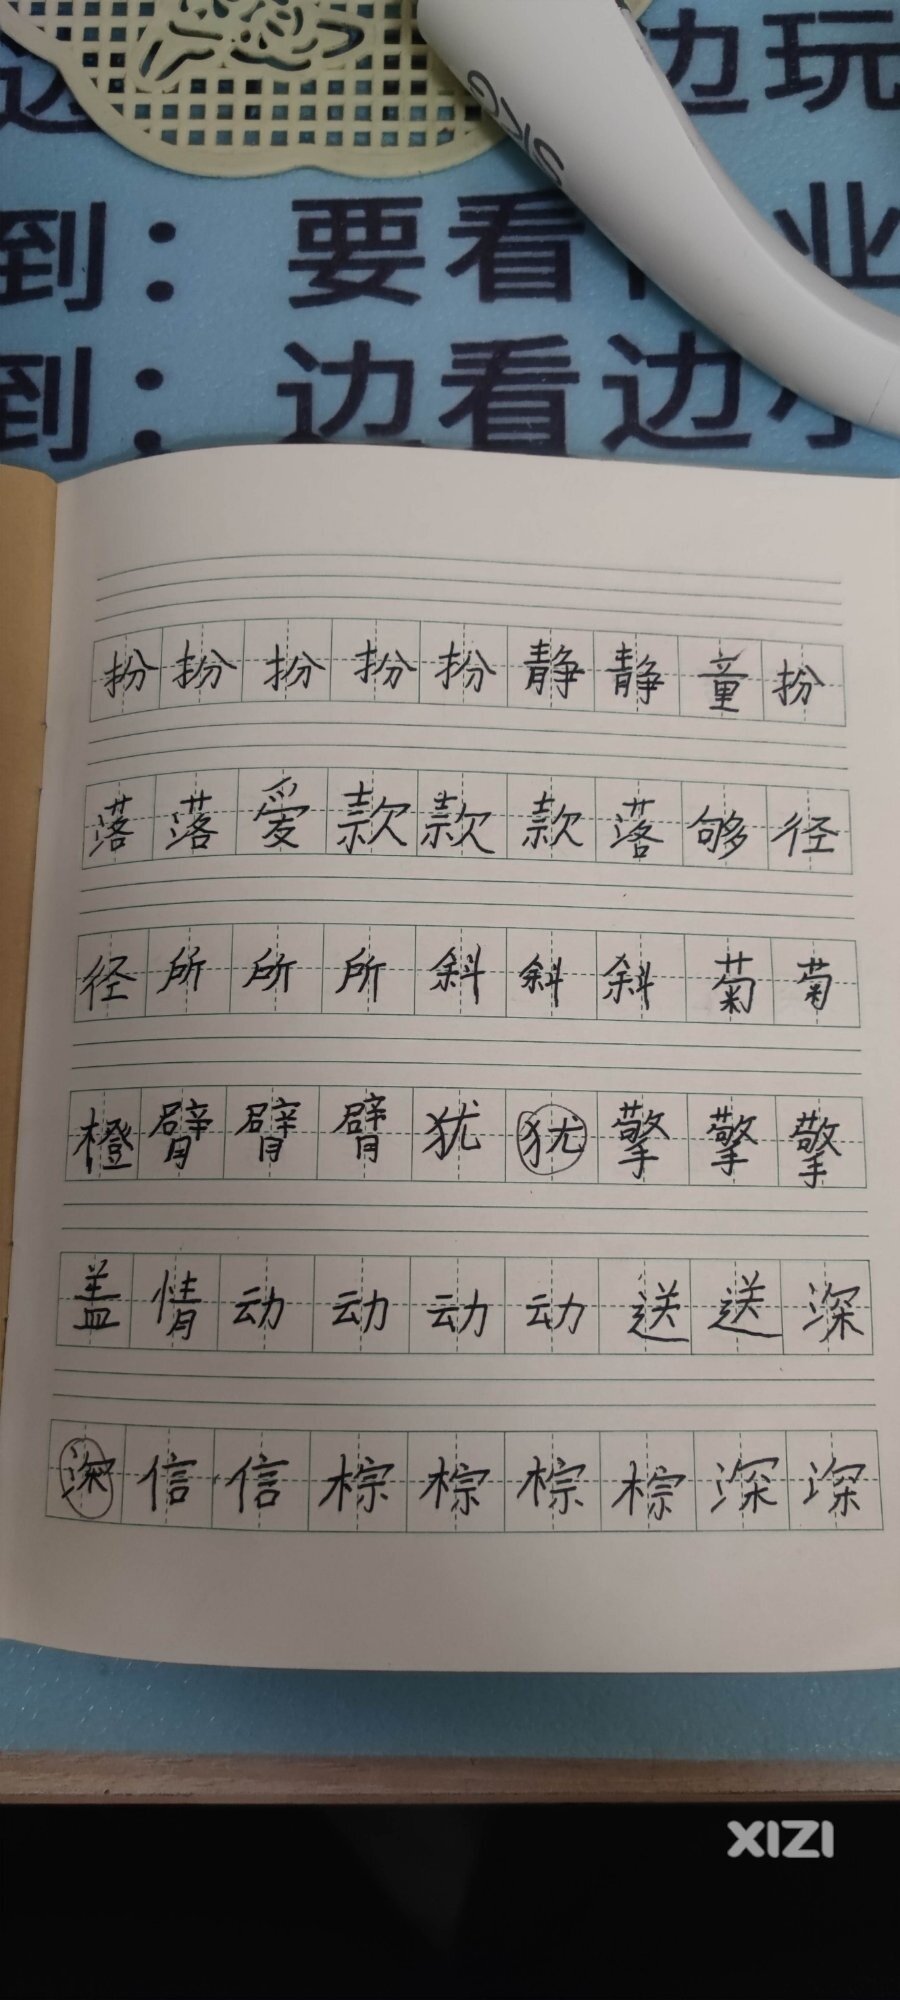 边 边玩
到：要看 业
到：边看边
SKG
扮扮扮扮扮静静童扮
落落爱款款款落够径
径所所所斜斜斜菊菊
橙臂臂臂犹犹擎擎擎
盖情动动动动送送深
深信信棕棕棕棕深深
XIZI